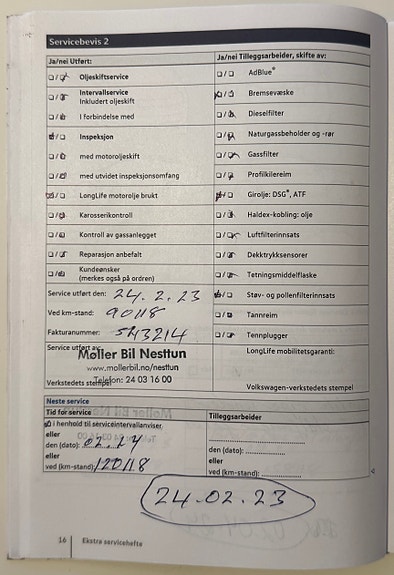 Servicebevis 2
Ja/nei Utført:
Oljeskiftservice
Intervallservice
Inkludert oljeskift
I forbindelse med
Inspeksjon
med motoroljeskift
med utvidet inspeksjonsomfang
LongLife motorolje brukt
Karosserikontroll
Kontroll av gassanlegget
Reparasjon anbefalt
Kundeønsker
(merkes også på ordren)
Service utført den: 24.2.23
Ved km-stand: 90118
Fakturanummer: 543214
Service utført av:
Møller Bil Nesttun
www.mollerbil.no/nesttun
Telefon: 24 03 16 00
Verkstedets stempel
Ja/nei Tilleggsarbeider, skifte av:
AdBlue®
Bremsevæske
Dieselfilter
Naturgassbeholder og -rør
Gassfilter
Profilkilereim
Girolje: DSG®, ATF
Haldex-kobling: olje
Luftfilterinnsats
Dekktrykksensorer
Tetningsmiddelflaske
Støv- og pollenfilterinnsats
Tannreim
Tennplugger
LongLife mobilitetsgaranti:
Volkswagen-verkstedets stempel
Neste service
Tid for service
i henhold til serviceintervallanviser
eller
den (dato): 02.24
eller
ved (km-stand): 120118
Tilleggsarbeider
den (dato):
eller
ved (km-stand):
24.02.23
16 Ekstra servicehefte